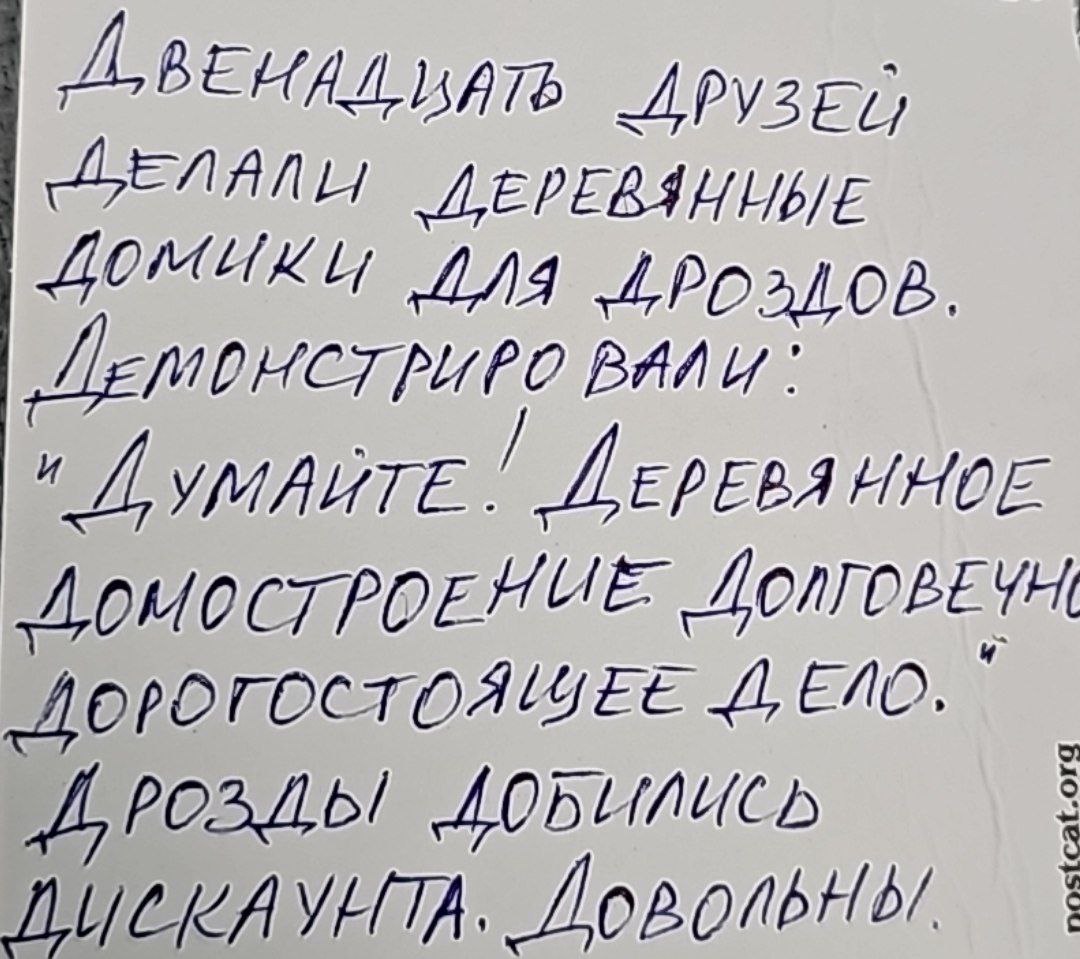 Двенадцать друзей
делали деревянные
домики для дроздов.
Демонстрировали:
"Думайте! Деревянное
домостроение долговечно
дорогостоящее дело."
Дрозды добились
дисκаунта. Довольны.
postcat.org